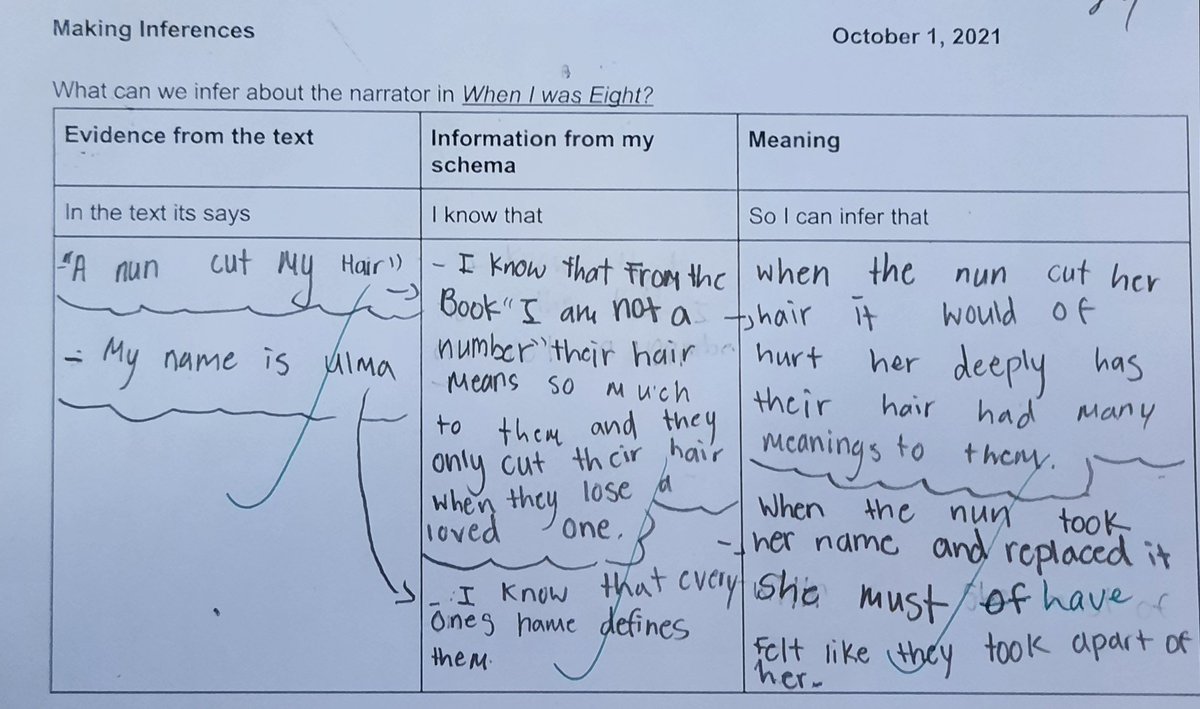 Making Inferences
October 1, 2021
What can we infer about the narrator in When I was Eight?
Evidence from the text
Information from my
schema
Meaning
In the text its says
I know that
So I can infer that
- "A nun cut My Hair"
- My name is Ulma
- I know that From the
Book "I am not a
number" their hair
means so much
to them and they
only cut their hair
when they lose a
loved one.
- I know that every
ones name defines
them.
when the nun cut her
hair it would of
hurt her deeply has
their hair had many
meanings to them.
When the nun took
her name and replaced it
She must of have
felt like they took apart of
her.